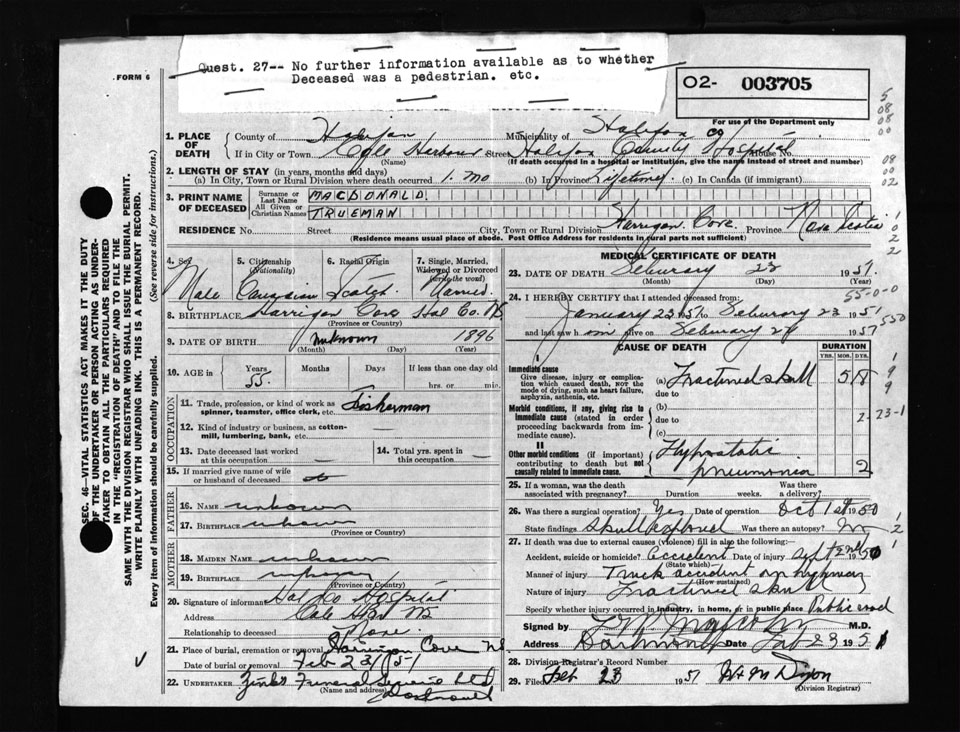 Quest. 27-- No further information available as to whether
Deceased was a pedestrian. etc.
FORM 6
02- 003705
For use of the Department only
1. PLACE OF DEATH
County of Halifax
Municipality of Halifax Co
If in City or Town Cole Harbour Street Halifax County Hospital House No.
(Name) (If death occurred in a hospital or institution, give the name instead of street and number)
2. LENGTH OF STAY (in years, months and days)
(a) In City, Town or Rural Division where death occurred 1. mo (b) In Province Lifetime (c) In Canada (if immigrant)
3. PRINT NAME OF DECEASED
Surname or Last Name MACDONALD.
All Given or Christian Names TRUEMAN
RESIDENCE No. Street City, Town or Rural Division Harrigan Cove. Province Nova Scotia
(Residence means usual place of abode. Post Office Address for residents in rural parts not sufficient)
4. Sex Male
5. Citizenship (Nationality) Canadian
6. Racial Origin Scotch
7. Single, Married, Widowed or Divorced (write the word)
8. BIRTHPLACE Harrigan Cove Hal Co. NS
(Province or Country)
9. DATE OF BIRTH unknown 1896
(Month) (Day) (Year)
10. AGE in Years 55. Months Days If less than one day hrs. or min.
OCCUPATION
11. Trade, profession, or kind of work as spinner, teamster, office clerk, etc. Fisherman
12. Kind of industry or business, as cotton-mill, lumbering, bank, etc.
13. Date deceased last worked at this occupation
14. Total yrs. spent in this occupation
15. If married give name of wife or husband of deceased
FATHER
16. Name unknown
17. Birthplace unknown
(Province or Country)
MOTHER
18. Maiden Name unknown
19. Birthplace unknown
(Province or Country)
20. Signature of informant Hal Co Hospital
Address Cole Hbr NS
Relationship to deceased None.
21. Place of burial, cremation or removal Harrigan Cove NS
Date of burial or removal Feb 23/51
22. UNDERTAKER Zinks Funeral Service Ltd
(Name and address) Dartmouth
MEDICAL CERTIFICATE OF DEATH
23. DATE OF DEATH February 23 1951.
(Month) (Day) (Year)
24. I HEREBY CERTIFY that I attended deceased from:
January 23 1951 to February 23 1951
and last saw him alive on February 1951
CAUSE OF DEATH
DURATION
YRS. MOS. DYS.
I
Immediate cause
Give disease, injury or complication which caused death, not the mode of dying, such as heart failure, asphyxia, asthenia, etc.
(a) Fractured skull
due to
Morbid conditions, if any, giving rise to immediate cause (stated in order proceeding backwards from immediate cause).
(b)
due to
(c)
II
Other morbid conditions (if important) contributing to death but not causally related to immediate cause.
Hypostatic pneumonia 2
25. If a woman, was the death associated with pregnancy? Duration weeks. Was there a delivery?
26. Was there a surgical operation? Yes Date of operation Oct 1st 1950
State findings Skull explored Was there an autopsy? No
27. If death was due to external causes (violence) fill in also the following:
Accident, suicide or homicide? Accident Date of injury Sept 2nd 1950
(State which)
Manner of injury Truck accident on highway
(How sustained)
Nature of injury Fractured Skull
Specify whether injury occurred in industry, in home, or in public place Public road
Signed by M.D.
Address Dartmouth Date Feb 23 1951
28. Division Registrar's Record Number
29. Filed Feb 23 1951 Dixon
(Division Registrar)
SEC. 46—VITAL STATISTICS ACT MAKES IT THE DUTY
OF THE UNDERTAKER OR PERSON ACTING AS UNDER-
TAKER TO OBTAIN ALL THE PARTICULARS REQUIRED
IN THE "REGISTRATION OF DEATH" AND TO FILE THE
SAME WITH THE DIVISION REGISTRAR WHO SHALL ISSUE THE BURIAL PERMIT.
WRITE PLAINLY WITH UNFADING INK. THIS IS A PERMANENT RECORD.
Every item of Information should be carefully supplied. (See reverse side for instructions.)